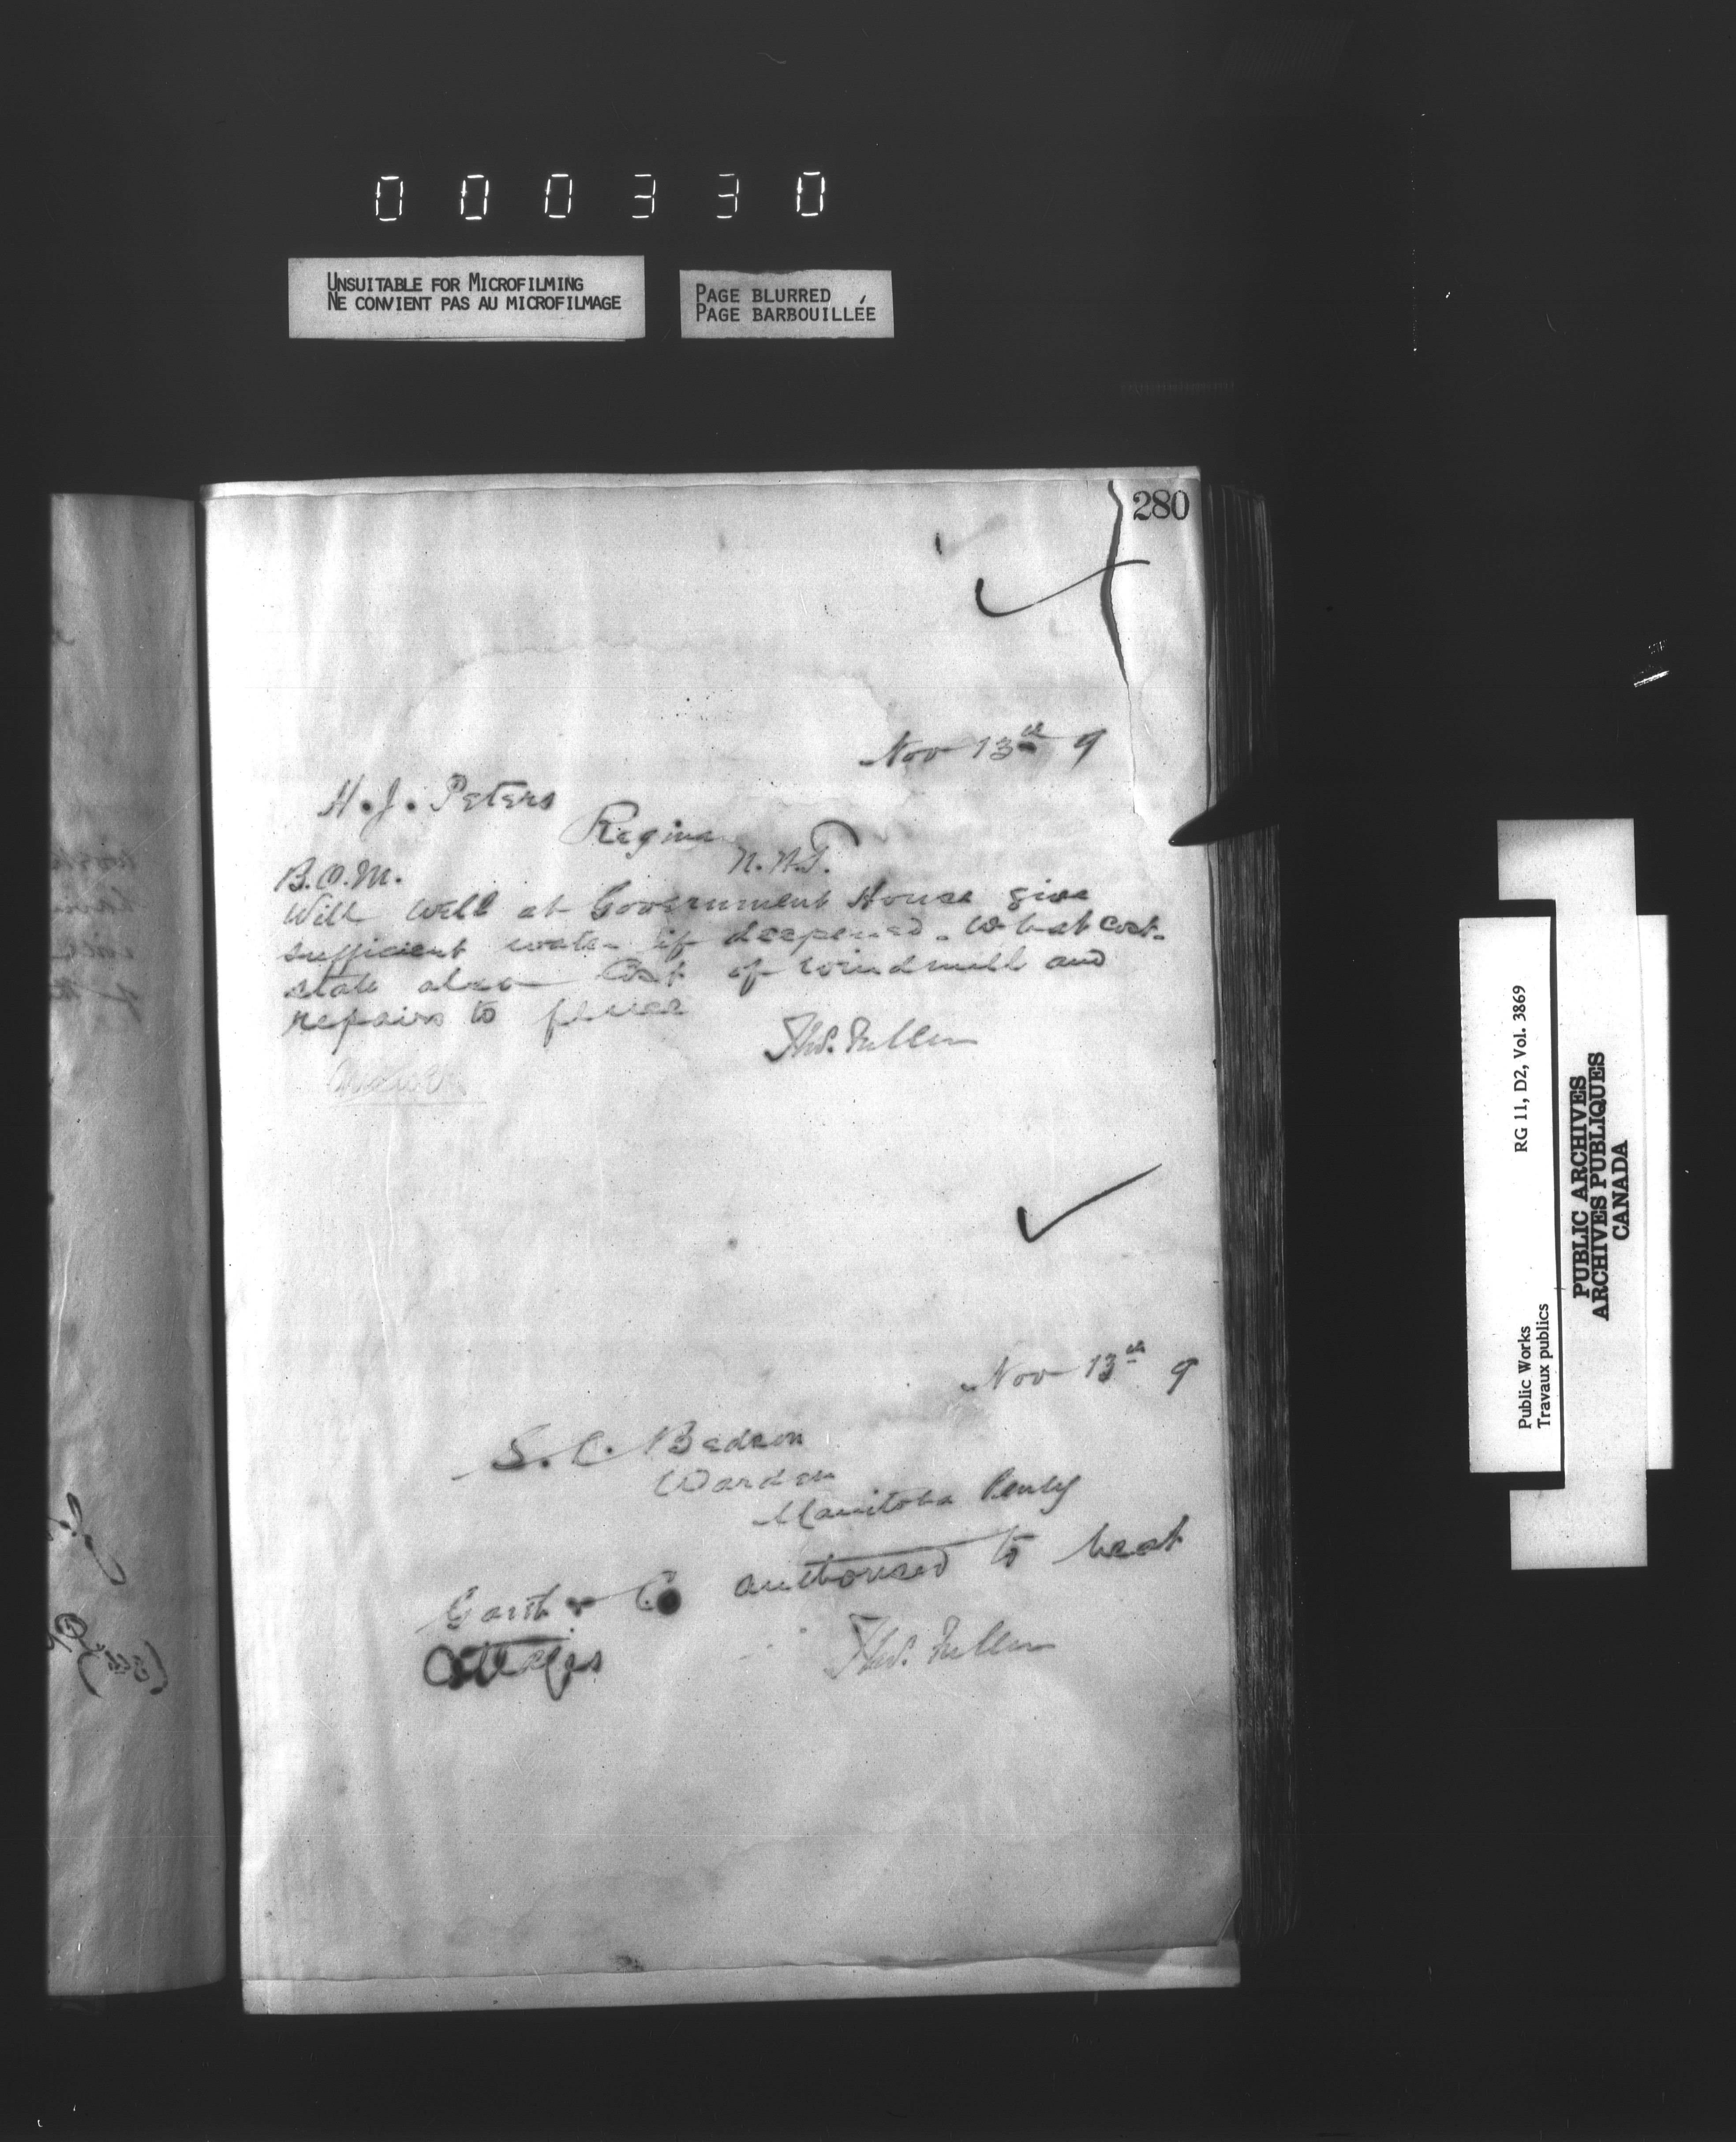 000330
UNSUITABLE FOR MICROFILMING
NE CONVIENT PAS AU MICROFILMAGE
PAGE BLURRED
PAGE BARBOUILLÉE
280
Nov 13th 9
H. J. Peters
Regina
N.W.T.
B.O.M.
Will well at Government House give
sufficient water if deepened. What cost.
state also cost of windmill and
repairs to
Thos. Fuller
Nov 13th 9
S. L. Bedson
Warden
Manitoba Penty
Garth & Co authorised to heat
Cottages
Thos. Fuller
Public Works
Travaux publics
RG 11, D2, Vol. 3869
PUBLIC ARCHIVES
ARCHIVES PUBLIQUES
CANADA